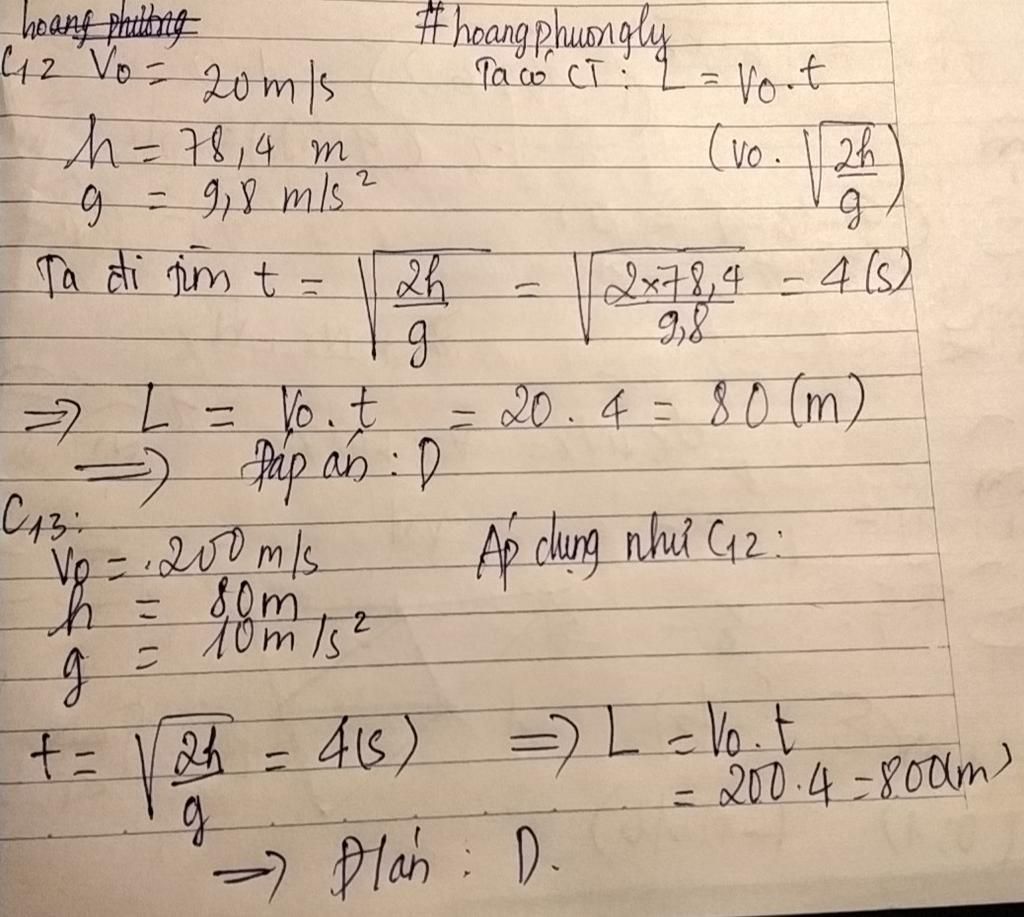 hoang phương
#hoangphuongly
C12 V0 = 20 m/s
Ta có CT: L = V0.t
h = 78,4 m
(v0. √(2h/g))
g = 9,8 m/s²
Ta đi tìm t = √(2h/g) = √(2×78,4/9,8) = 4 (s)
=> L = V0.t = 20 . 4 = 80 (m)
=> Đáp án : D
C13:
V0 = 200 m/s
Áp dụng như C12:
h = 80m
g = 10m/s²
t = √(2h/g) = 4(s) => L = V0.t
= 200.4 = 800(m)
=> Đ/án : D.